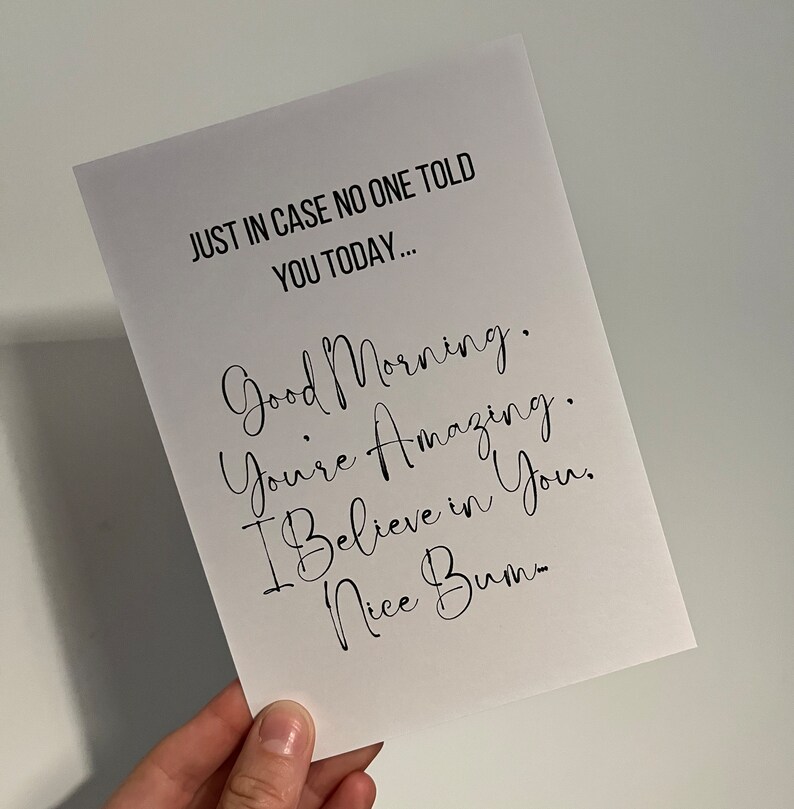 JUST IN CASE NO ONE TOLD
YOU TODAY...
Good Morning.
You're Amazing.
I Believe in You.
Nice Bum...